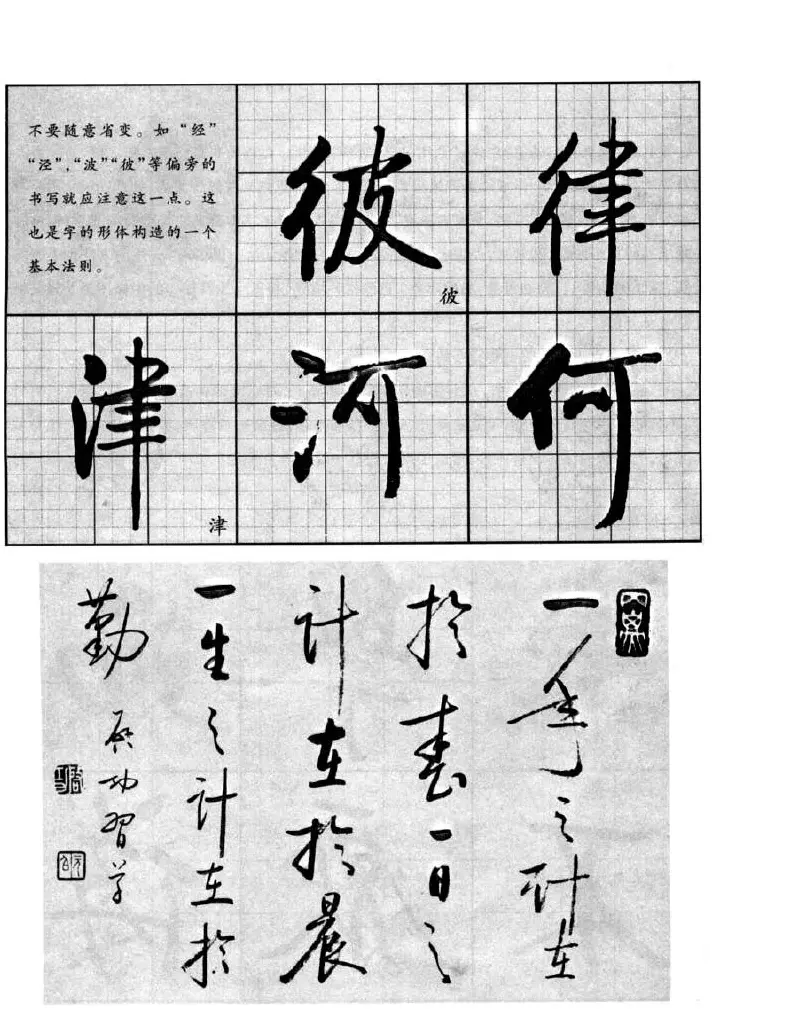 不要随意省变。如“经”
“泾”，“波”“彼”等偏旁的
书写就应注意这一点。这
也是字的形体构造的一个
基本法则。
彼
彼
律
津
津
河
何
一年之计在
於春一日之
计在於晨
一生之计在於
勤
启功習字